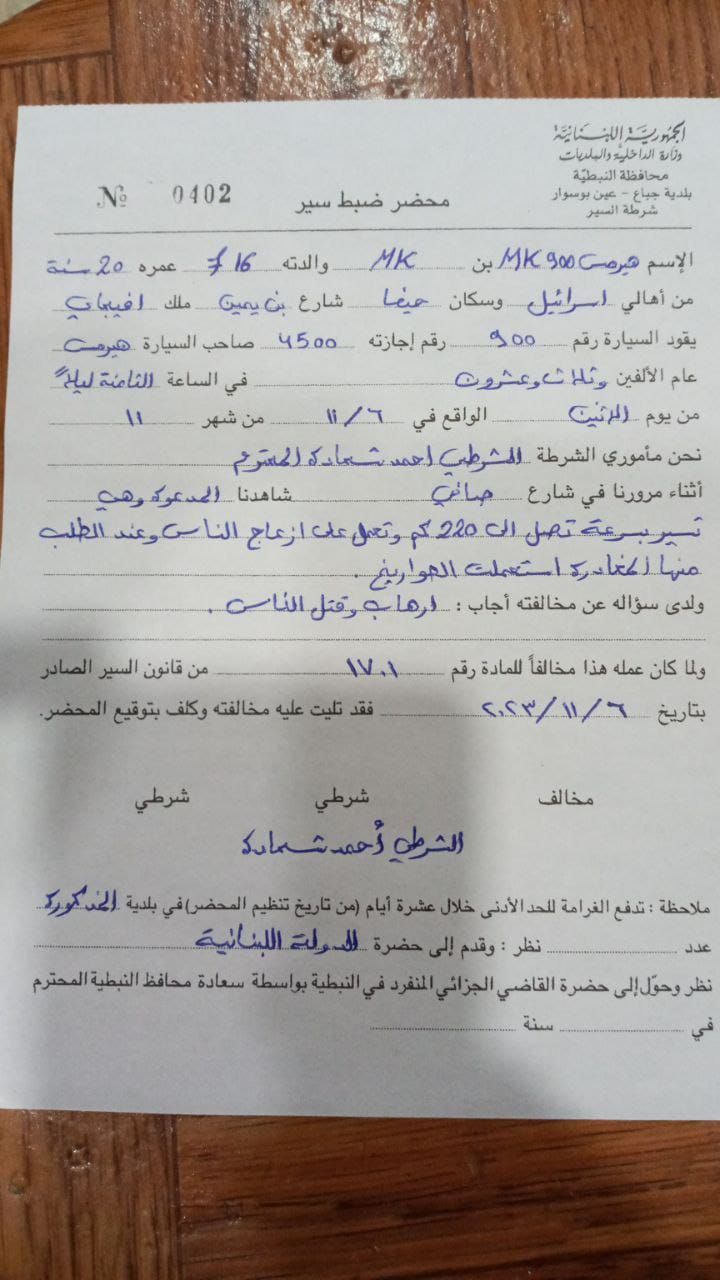 الجمهورية اللبنانية
وزارة الداخلية والبلديات
محافظة النبطية
بلدية جباع - عين بوسوار
شرطة السير
محضر ضبط سير
№ 0402
الإسم هيرمس MK 900 بن MK والدته F 16 عمره 20 سنة
من أهالي اسرائيل وسكان حيفا شارع بن يمين ملك افيخاي
يقود السيارة رقم 900 رقم إجازته 4500 صاحب السيارة هيرمس
عام الألفين وثلاث وعشرون في الساعة الثامنة ليلاً
من يوم الاثنين الواقع في ١١/٦ من شهر ١١
نحن مأموري الشرطة الشرطي احمد شحادة المحترم
أثناء مرورنا في شارع صافي شاهدنا المدعوة وهي
تسير بسرعة تصل الى 220 كم وتعمل على ازعاج الناس وعند الطلب
منها المغادرة استعملت الصواريخ.
ولدى سؤاله عن مخالفته أجاب : ارهاب وقتل الناس.
ولما كان عمله هذا مخالفاً للمادة رقم ١٧٠١ من قانون السير الصادر
بتاريخ ٢٠٢٣/١١/٦ فقد تليت عليه مخالفته وكلف بتوقيع المحضر.
مخالف شرطي شرطي
الشرطي أحمد شحادة
ملاحظة : تدفع الغرامة للحد الأدنى خلال عشرة أيام (من تاريخ تنظيم المحضر) في بلدية المذكورة
عدد نظر : وقدم إلى حضرة الدولة اللبنانية
نظر وحوّل إلى حضرة القاضي الجزائي المنفرد في النبطية بواسطة سعادة محافظ النبطية المحترم
في سنة